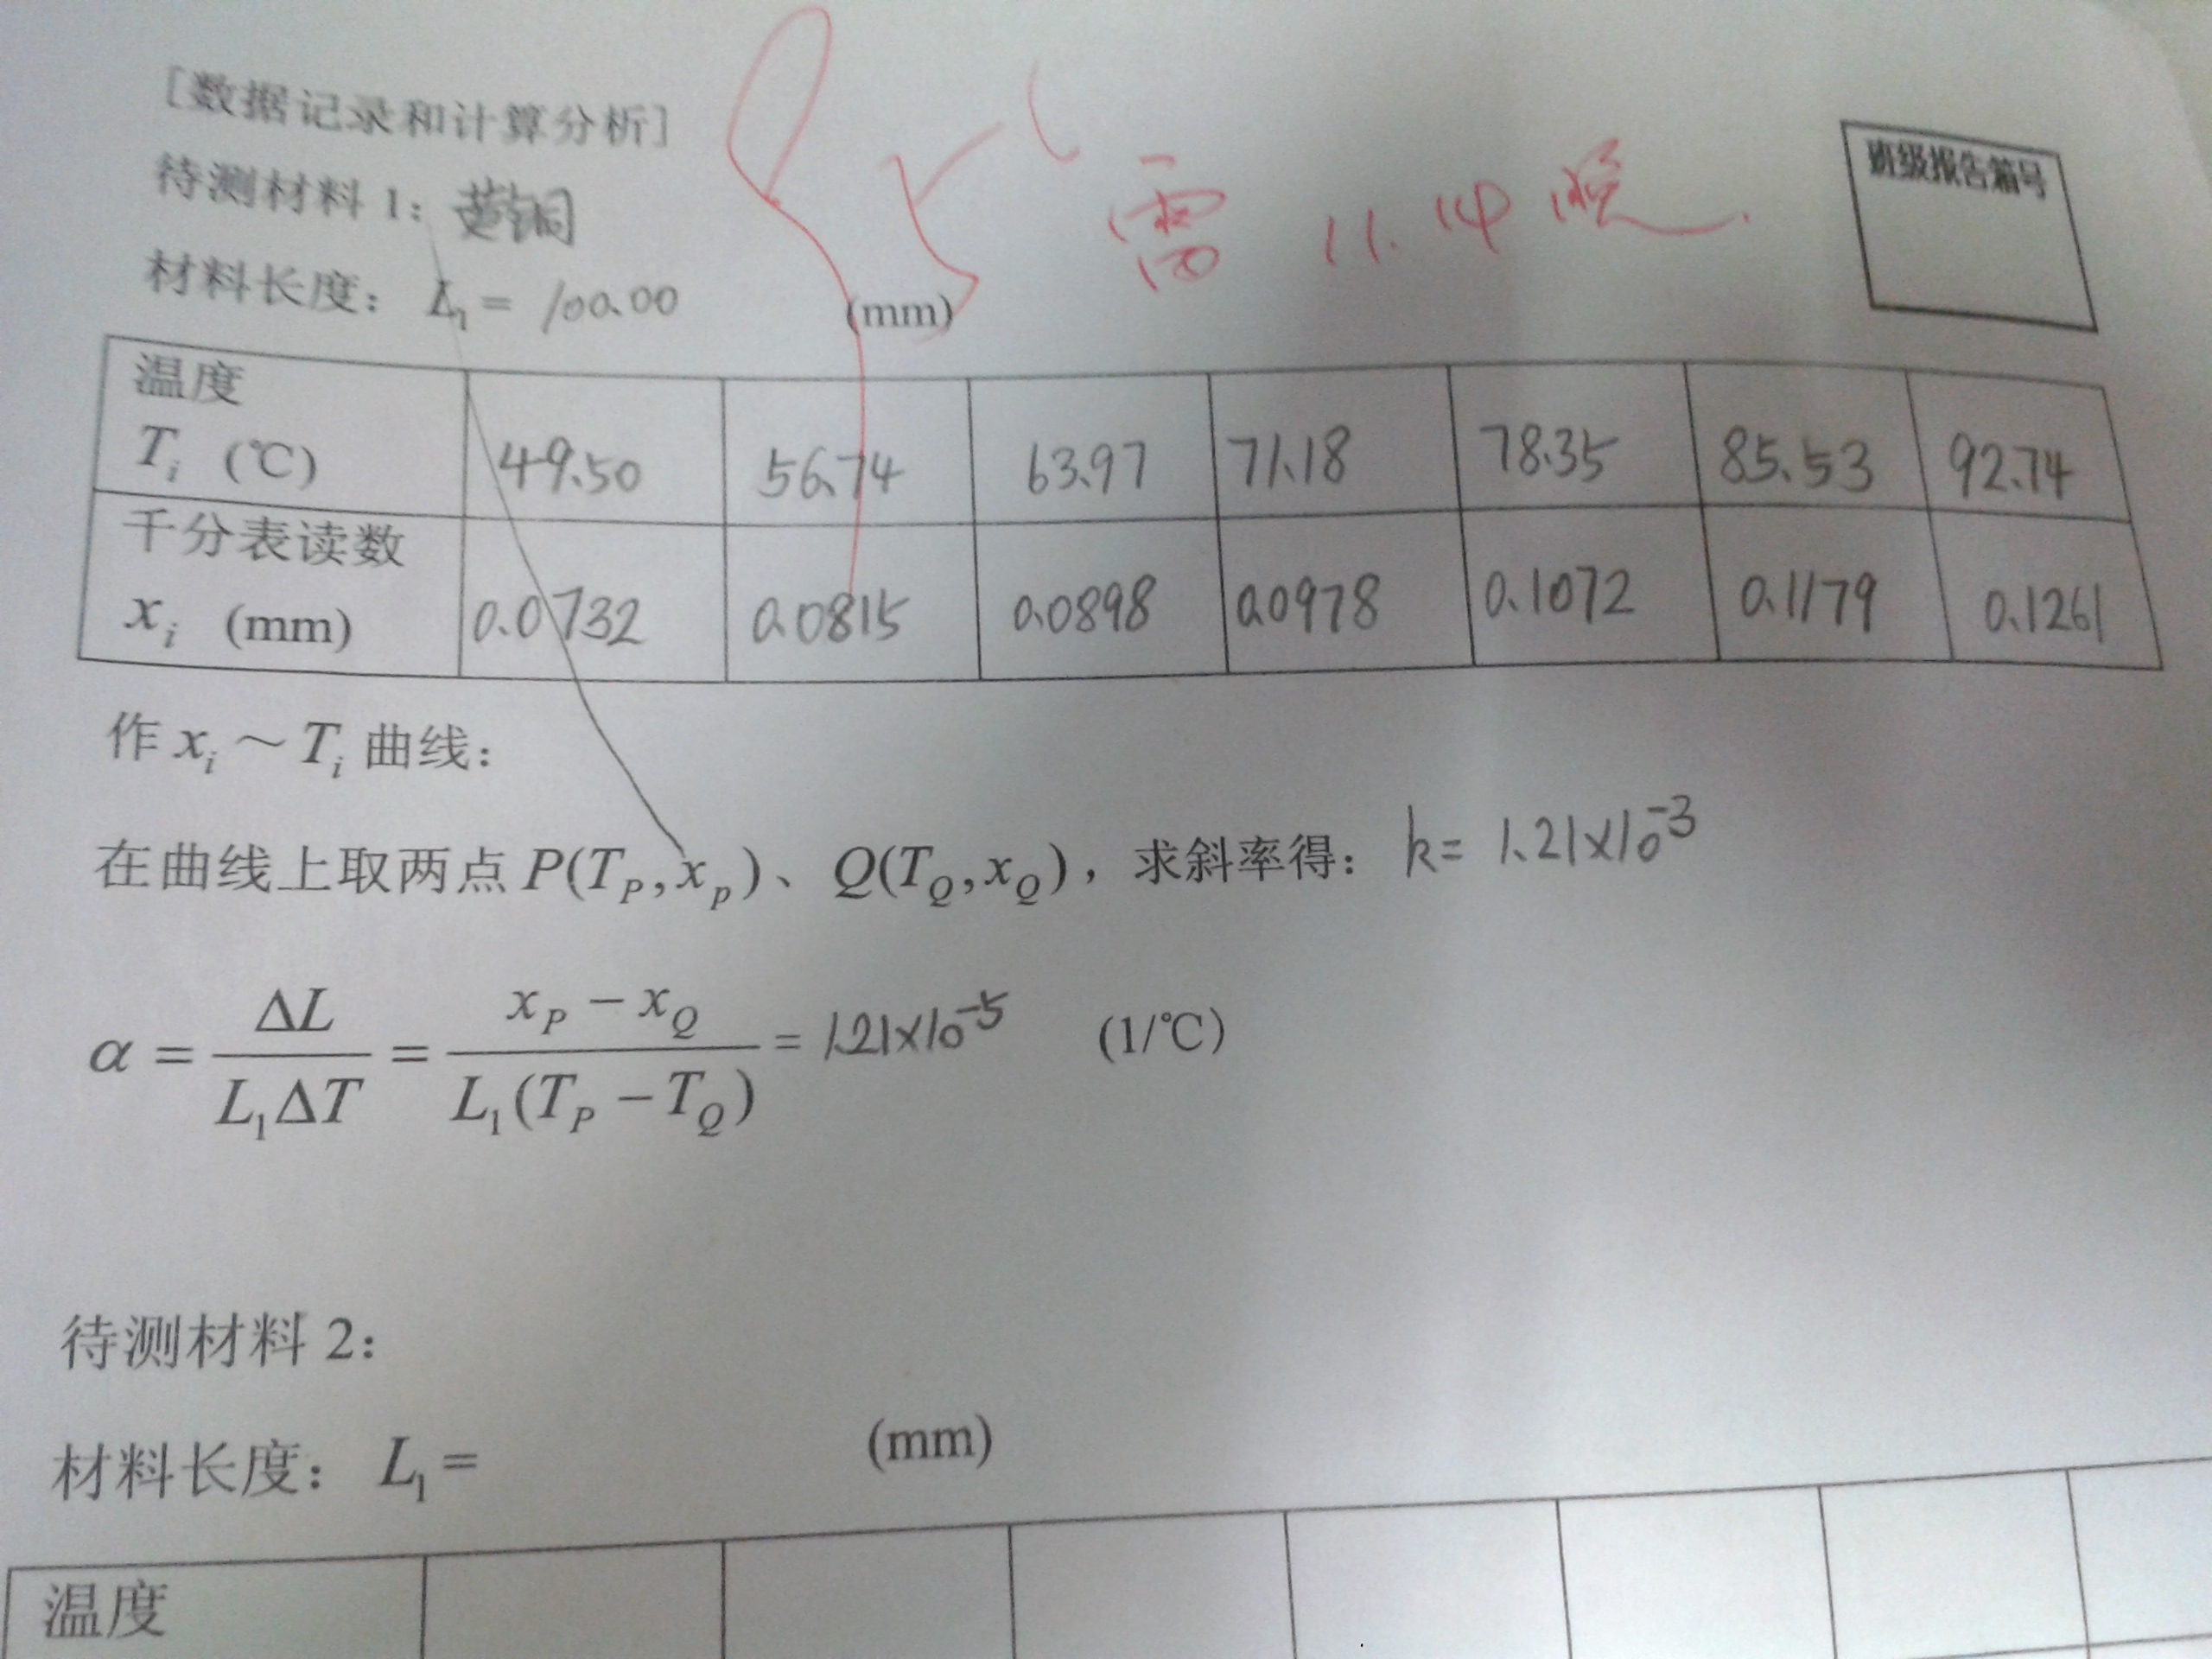 [数据记录和计算分析]
班级报告箱号
待测材料 1: 黄铜
11.14 晚
材料长度: L₁ = 100.00 (mm)
温度 Tᵢ (℃) 49.50 56.74 63.97 71.18 78.35 85.53 92.74
千分表读数 xᵢ (mm) 0.0732 0.0815 0.0898 0.0978 0.1072 0.1179 0.1261
作 xᵢ ~ Tᵢ 曲线:
在曲线上取两点 P(T_P, x_p)、Q(T_Q, x_Q), 求斜率得: k= 1.21×10⁻³
α = ΔL / L₁ΔT = (x_P − x_Q) / L₁(T_P − T_Q) = 1.21×10⁻⁵ (1/℃)
待测材料 2:
材料长度: L₁ = (mm)
温度